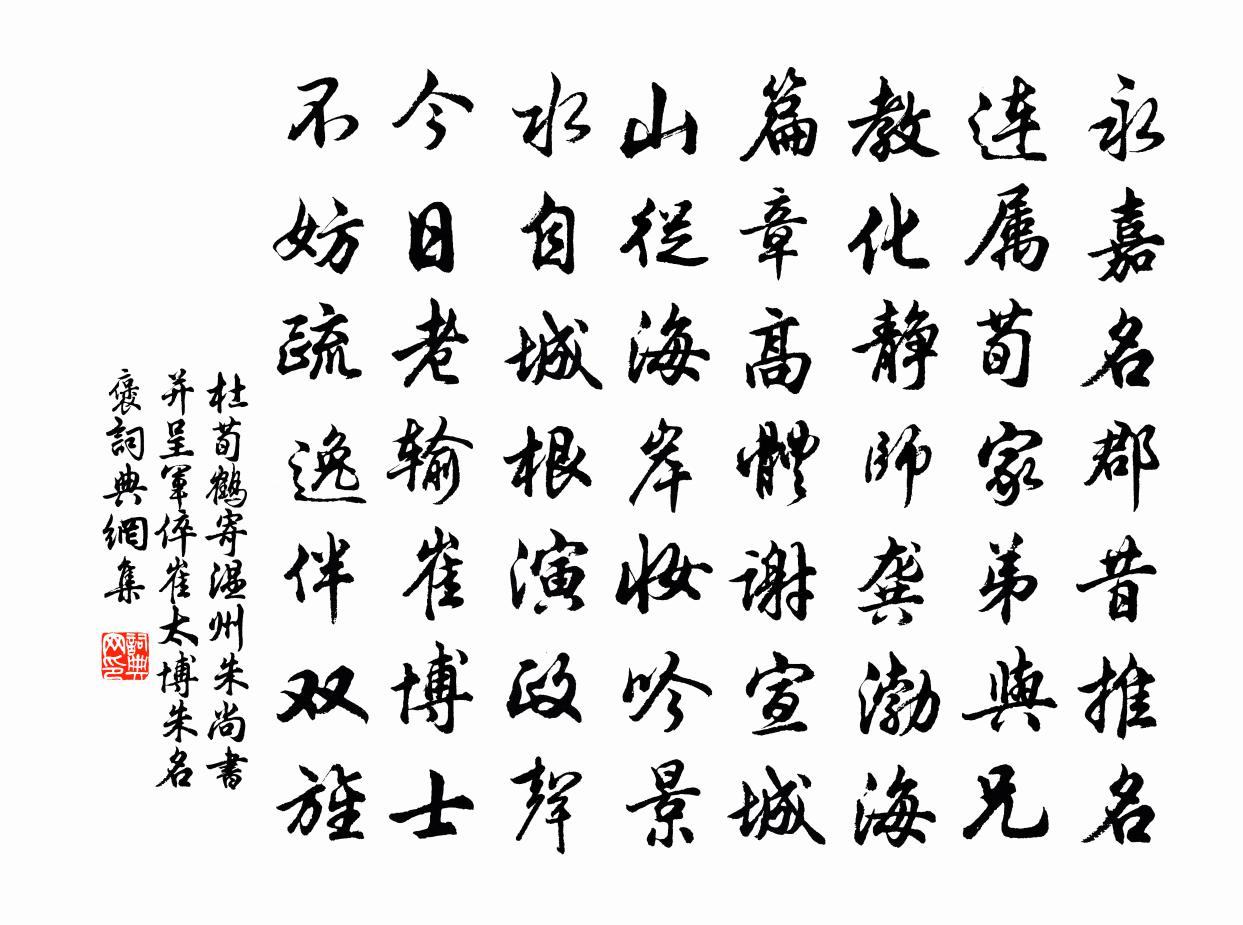 永嘉名郡昔推名
連属荀家弟與兄
教化静師龔渤海
篇章高體謝宣城
山從海岸妝吟景
水自城根演政聲
今日老输崔博士
不妨疏逸伴双旌
杜荀鶴寄温州朱尚書
并呈軍倅崔太博朱名
褒詞典網集
詞典网印